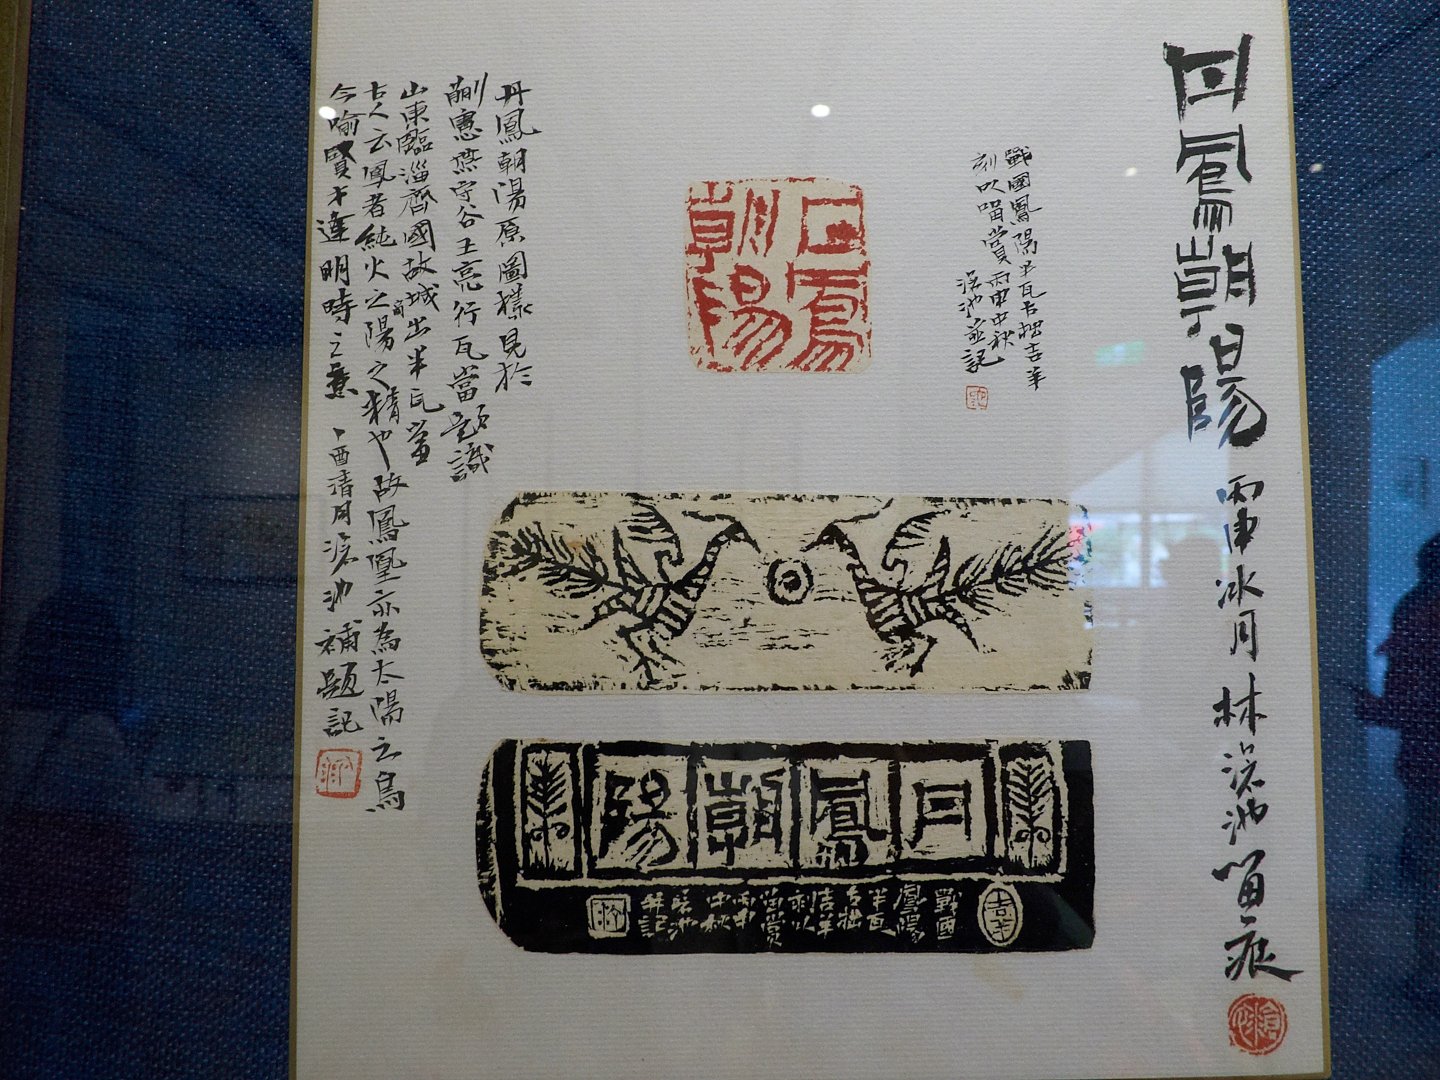 丹鳳朝陽 丙申冰月 林滄池留痕
戰國鳳陽半瓦古拙吉羊
刻以留賞丙申中秋
滄池並記
丹鳳朝陽
丹鳳朝陽原圖樣見於
蒯憲燕守谷王亮行瓦當題識
山東臨淄齊國故城出半瓦當
古人云鳳者純火之禽陽之精也故鳳凰亦為太陽之鳥
今喻賢才逢明時之意 丁酉清月滄池補題記
丹鳳朝陽
吉羊
戰國
鳳陽
半瓦
古拙
吉羊
刻以
留賞
丙申
中秋
滄池
並記